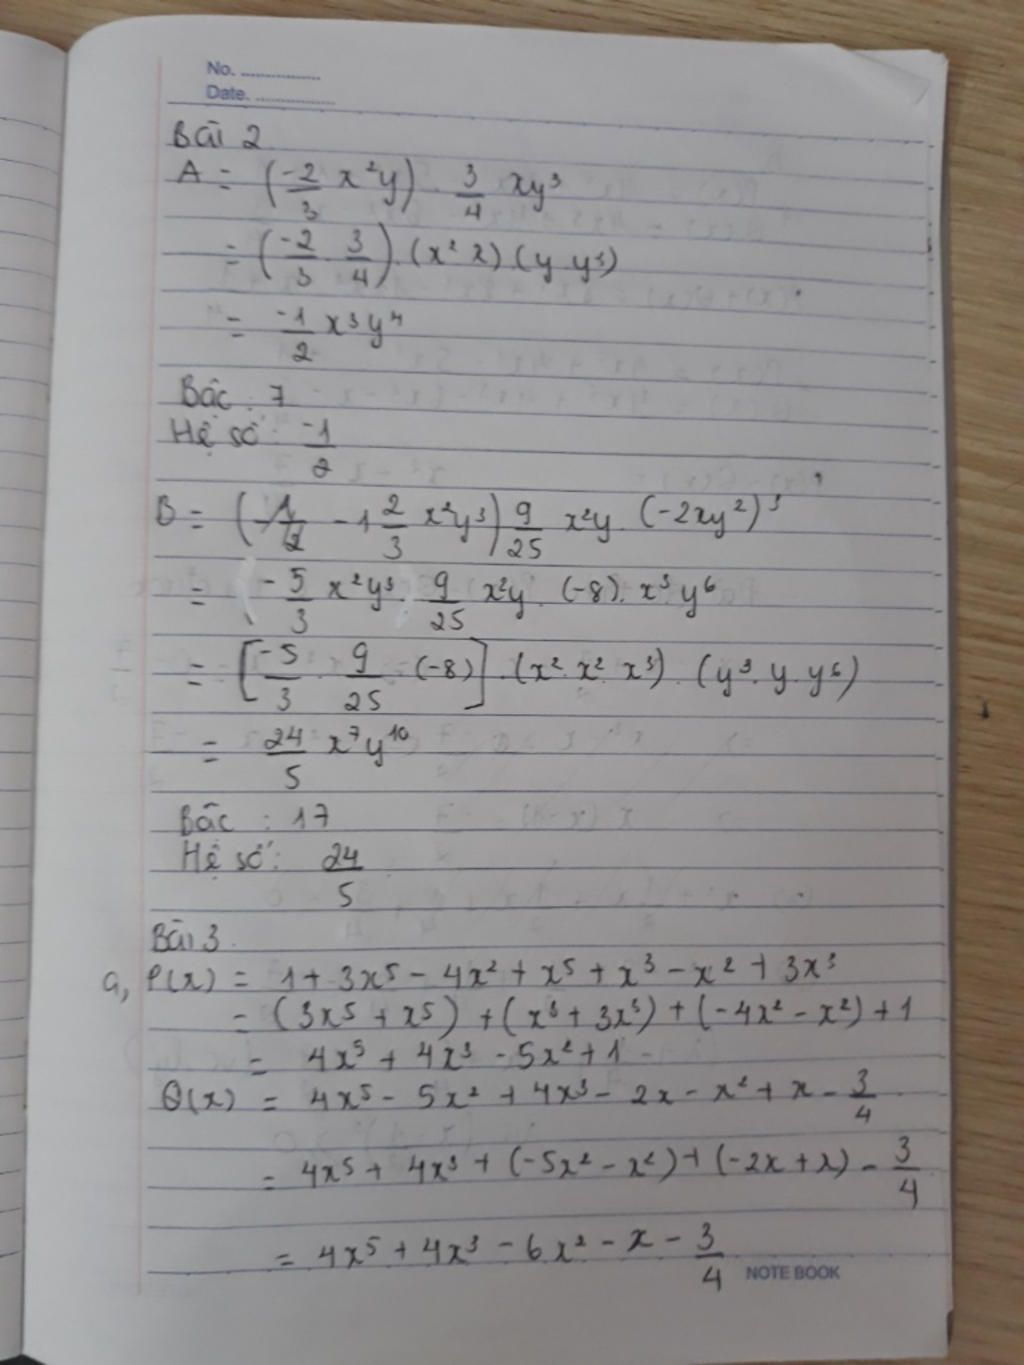 No. ................
Date. ................
Bài 2
A = (-2/3 x²y) . 3/4 xy³
= (-2/3 . 3/4) . (x² x) (y . y³)
= -1/2 x³y⁴
Bậc : 7
Hệ số : -1/2
B = ( -1 2/3 x²y³) 9/25 x²y . (-2xy²)³
= -5/3 x²y³ . 9/25 x²y . (-8) . x³y⁶
= [-5/3 . 9/25 . (-8)] . (x² . x² . x³) . (y³ . y . y⁶)
= 24/5 x⁷y¹⁰
Bậc : 17
Hệ số : 24/5
Bài 3
a, P(x) = 1 + 3x⁵ - 4x² + x⁵ + x³ - x² + 3x³
= (3x⁵ + x⁵) + (x³ + 3x³) + (-4x² - x²) + 1
= 4x⁵ + 4x³ - 5x² + 1
Q(x) = 4x⁵ - 5x² + 4x³ - 2x - x² + x - 3/4
= 4x⁵ + 4x³ + (-5x² - x²) + (-2x + x) - 3/4
= 4x⁵ + 4x³ - 6x² - x - 3/4
NOTE BOOK